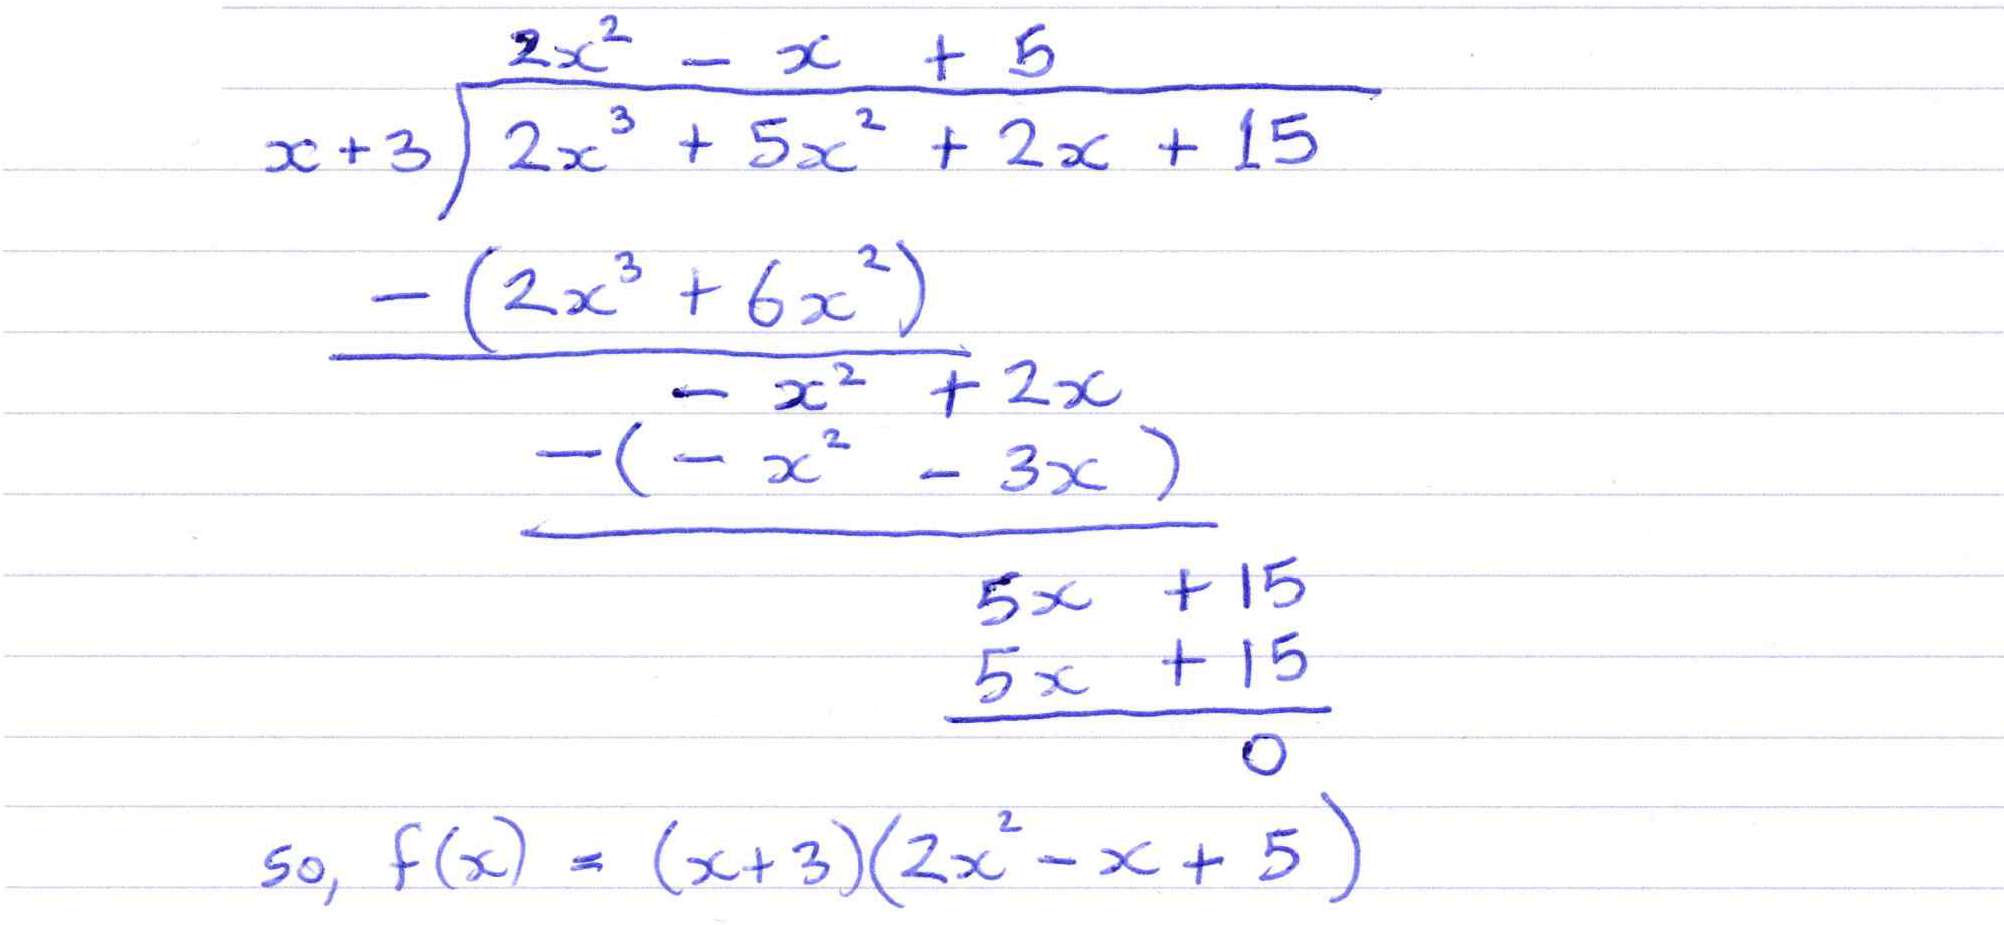 2x² - x + 5
x+3 ) 2x³ + 5x² + 2x + 15
-(2x³ + 6x²)
- x² + 2x
-( - x² - 3x )
5x + 15
5x + 15
0
so, f(x) = (x+3)(2x² - x + 5)